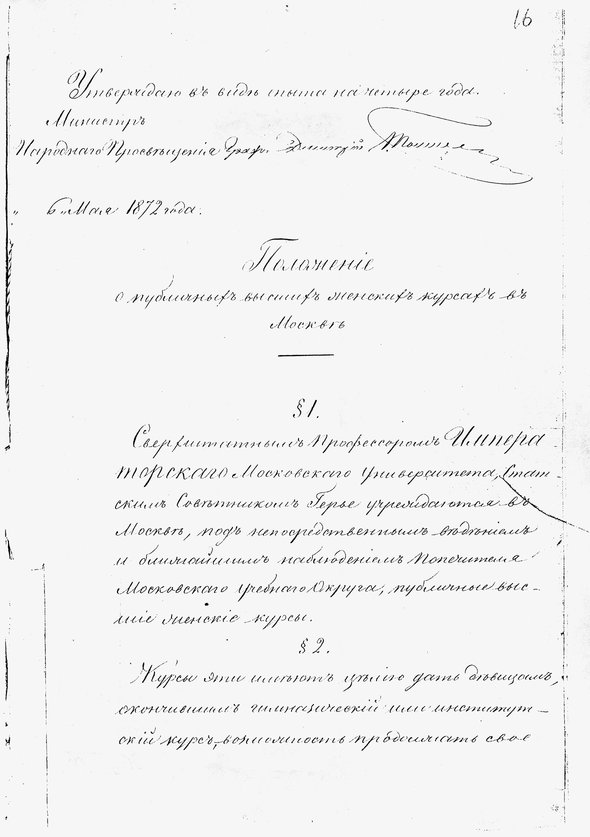 16
Утверждаю въ видѣ опыта на четыре года.
Министръ
Народнаго Просвѣщенія Граф. Дмитрій Толстой
„ 6 „ Мая 1872 года.
Положеніе
о публичныхъ высшихъ женскихъ курсахъ въ
Москвѣ
§ 1.
Сверхштатнымъ Профессоромъ Импера
торскаго Московскаго Университета, Стат-
скимъ Совѣтникомъ Герье учреждаются въ
Москвѣ, подъ непосредственнымъ вѣдѣніемъ
и ближайшимъ наблюденіемъ Попечителя
Московскаго учебнаго Округа, публичные выс-
шіе женскіе курсы.
§ 2.
Курсы эти имѣютъ цѣлію дать дѣвицамъ,
окончившимъ гимназическій или институт-
скій курсъ, возможность продолжать свое